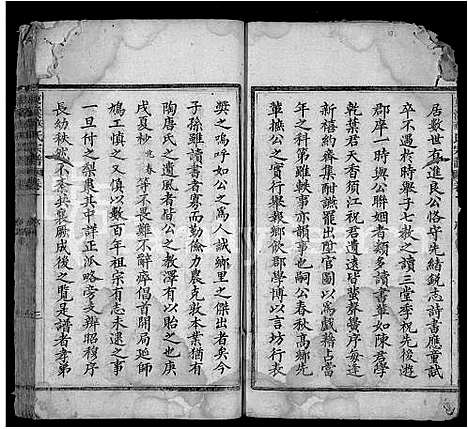 居数世有進良公恪守先緒鋭志詩書應童試
卒不遇於時舉子七教之讀三堂季祝先後遊
郡庠一時與公聯姻者類多讀書華如陳君學
乾葉君天香須江祝君遺遠皆蜚聲黌序每逢
新禧約齋集酣讌罷出陞官圖以為戲籍占當
年利鈍軼事亦韻事也嗣公春秋髙鄉先
輩摭公之行誼鄉飲郡學博以言坊行表
奬之嗚呼如公之爲人誠鄉里之傑出者矣今
子孫雖讀書者寡而勤儉力農克敦本業猶有
陶唐氏之遺風者皆公之教澤有以貽之也庚
戌夏杪 等不畏艱難不辭瘁倡首開局延師
鳩工慎之又慎以數百年祖宗有志未逮之事
一旦付之梨棗其中詳正派略旁支辨昭穆序
長幼秩然不紊共襄厥成後之覽是譜者孝弟